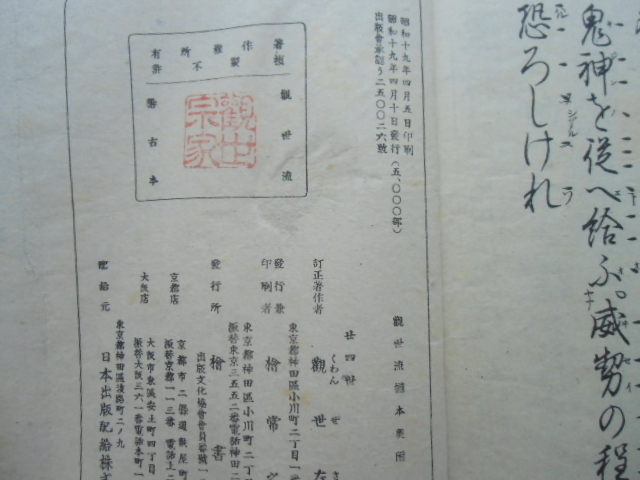 鬼神を従へ給ふ。威勢の程
恐ろしけれ
昭和十九年四月五日印刷
昭和十九年四月十日發行(五,〇〇〇部)
出版會承認う二五〇〇二六號
著作權所有
不許複製
觀世流
觀世宗家
稽古本
觀世流謠本奥附
廿四世
訂正著作者 觀世左
くわんぜさ
東京都神田區小川町二丁目一
發行兼印刷者 檜常之
東京都神田區小川町二丁
振替東京三五五二番電話神田二
出版文化協會會員番號一
發行所 檜書
京都店
振替京都一一三番 電話上二
大阪店 大阪市東區安土町四丁目
振替大阪三六一番電話本町一
配給元
東京都神田區淡路町二ノ九
日本出版配給株式